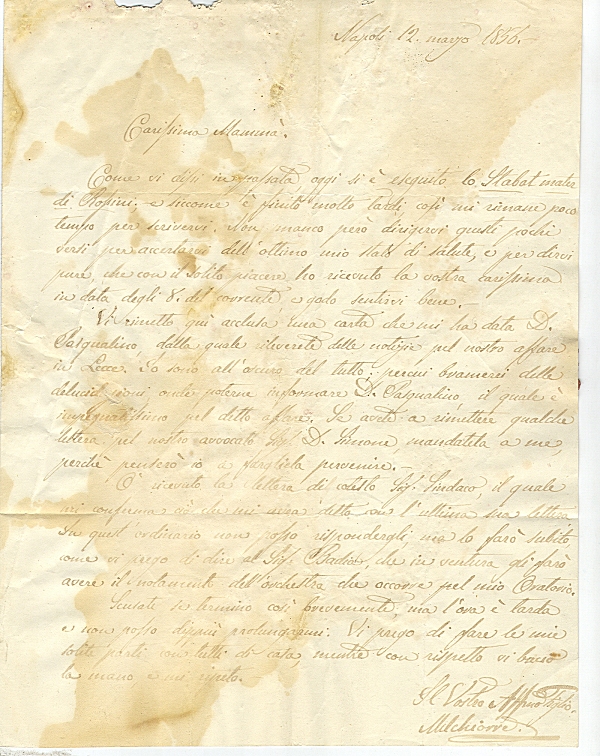 Napoli 12. marzo 1856.-
Carissima Mammà.
Come vi dissi in passata, oggi si è eseguito lo Stabat mater
di Rossini. e siccome è finito molto tardi così mi rimane poco
tempo per scrivervi. Non manco però dirigervi questi pochi
versi per accertarvi dell'ottimo mio stato di salute, e per dirvi
pure, che con il solito piacere ho ricevuto la vostra carissima
in data degli 8. del corrente, e godo sentirvi bene.-
Vi rimetto quì acclusa una carta che mi ha data D.
Pasqualino dalla quale rileverete delle notizie pel nostro affare
in Lecce. Io sono all'oscuro del tutto; perciò bramerei delle
delucidazioni onde poterne informare D. Pasqualino il quale è
impegnatissimo pel detto affare. Se avete a rimettere qualche
lettera pel nostro avvocato Sig. D. Simone, mandatela a me,
perchè penserò io a fargliela pervenire.-
Ò ricevuto la lettera di cotesto Sig. Sindaco, il quale
mi conferma ciò che mi avea detto con l'ultima sua lettera
In quest'ordinario non posso rispondergli, ma lo farò subito
come vi prego di dire al Sig. che in ventura gli farò
avere il notamento dell'orchestra che occorre pel mio Oratorio.
Scusate se termino così brevemente, ma l'ora è tarda
e non posso dippiù prolungarmi. Vi prego di fare le mie
solite parti con tutti di casa, mentre con rispetto vi bacio
la mano e mi ripeto.-
Il Vostro Affmo Figlio.
Melchiorre.